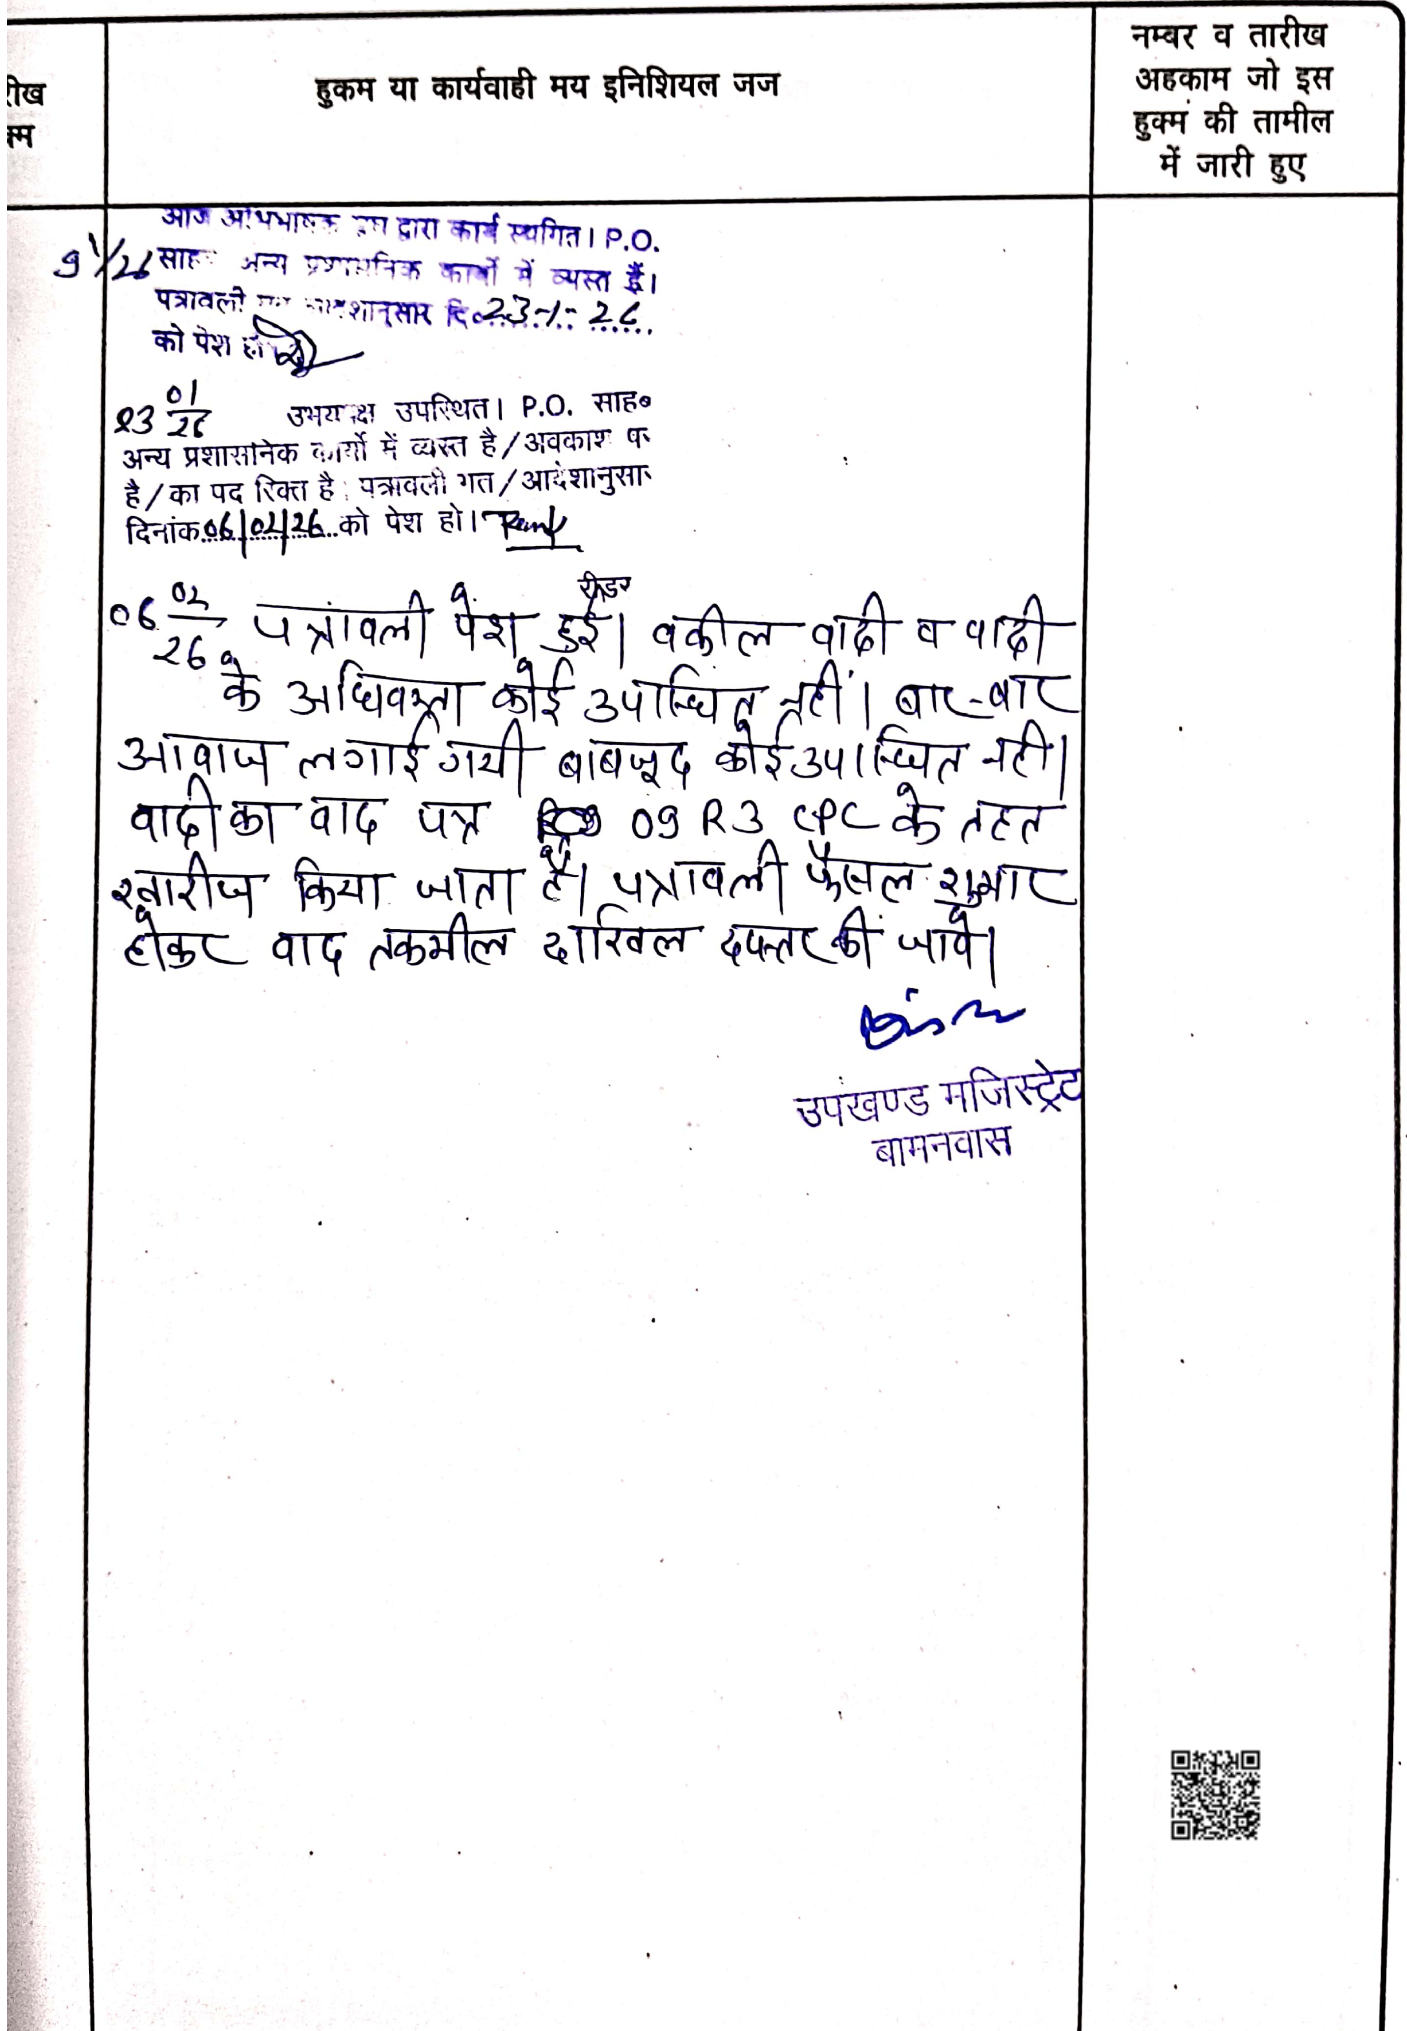 रीख
क्म
हुकम या कार्यवाही मय इनिशियल जज
नम्बर व तारीख
अहकाम जो इस
हुक्म की तामील
में जारी हुए
आज अभिभाषक द्वारा कार्य स्थगित। P.O.
9 1/26 साह अन्य प्रशासनिक कार्यों में व्यस्त हैं।
पत्रावली दि० 23-1-26
को पेश हो
23 01/26 उभयपक्ष उपस्थित। P.O. साह०
अन्य प्रशासनिक कार्यो में व्यस्त है/अवकाश पर
है/का पद रिक्त है। पत्रावली गत/आदेशानुसार
दिनांक 06/02/26 को पेश हो।
रीडर
06 02/26 पत्रांवली पेश हुई। वकील वादी व वादी
के अधिवक्ता कोई उपस्थित नहीं। बार-बार
आवाज लगाई गयी बाबजूद कोई उपस्थित नही।
वादी का वाद पत्र 09 R3 CPC के तहत
खारीज किया जाता है। पत्रावली फैसल शुमार
होकर वाद तकमील दाखिल दफ्तर की जावे।
उपखण्ड मजिस्ट्रेट
बामनवास